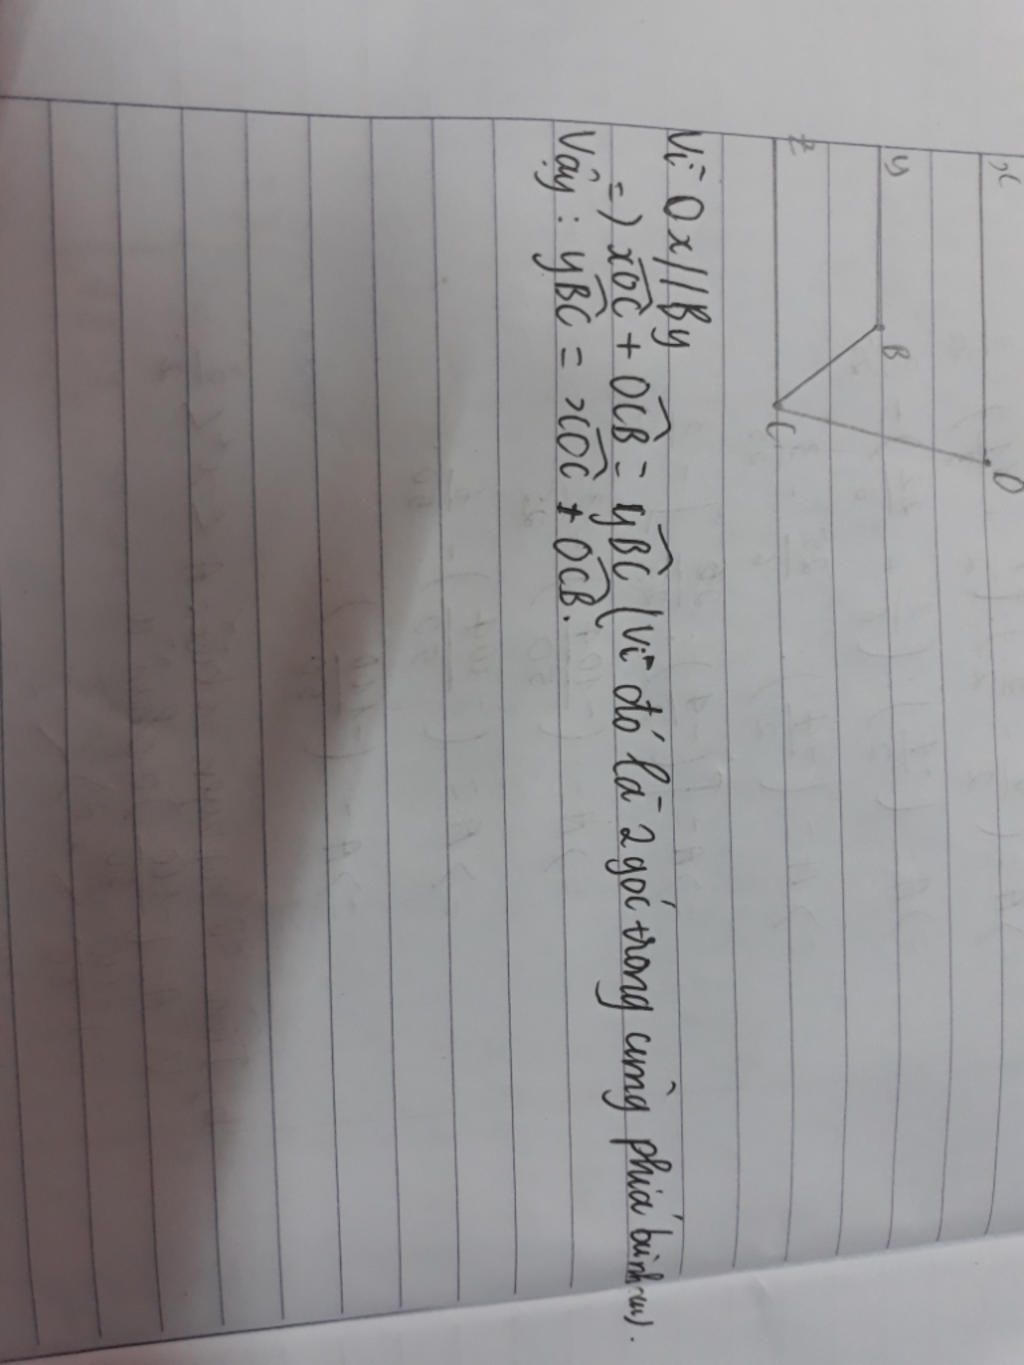 x
O
y
B
z
C
Vì Ox//By
=) xOC + OCB = yBC (vì đó là 2 góc trong cùng phía
Vậy: yBC = xOC + OCB.